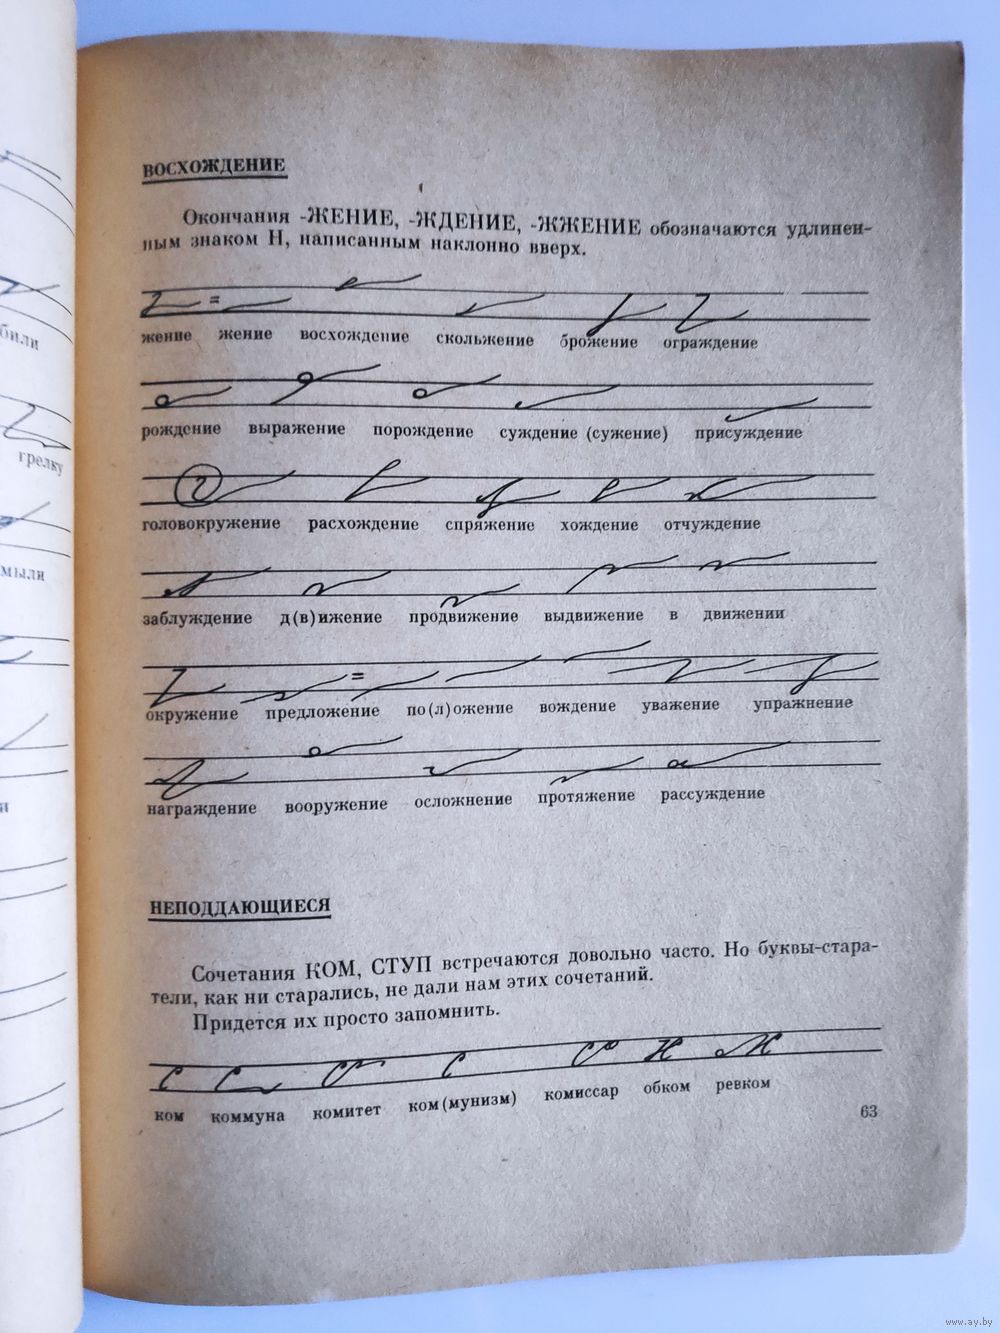 били
грелку
мыли
ВОСХОЖДЕНИЕ
Окончания -ЖЕНИЕ, -ЖДЕНИЕ, -ЖЖЕНИЕ обозначаются удлинен-
ным знаком Н, написанным наклонно вверх.
=
жение жение восхождение скольжение брожение ограждение
рождение выражение порождение суждение (сужение) присуждение
головокружение расхождение спряжение хождение отчуждение
заблуждение д(в)ижение продвижение выдвижение в движении
=
окружение предложение по(л)ожение вождение уважение упражнение
награждение вооружение осложнение протяжение рассуждение
НЕПОДДАЮЩИЕСЯ
Сочетания КОМ, СТУП встречаются довольно часто. Но буквы-стара-
тели, как ни старались, не дали нам этих сочетаний.
Придется их просто запомнить.
ком коммуна комитет ком(мунизм) комиссар обком ревком
63
www.ay.by